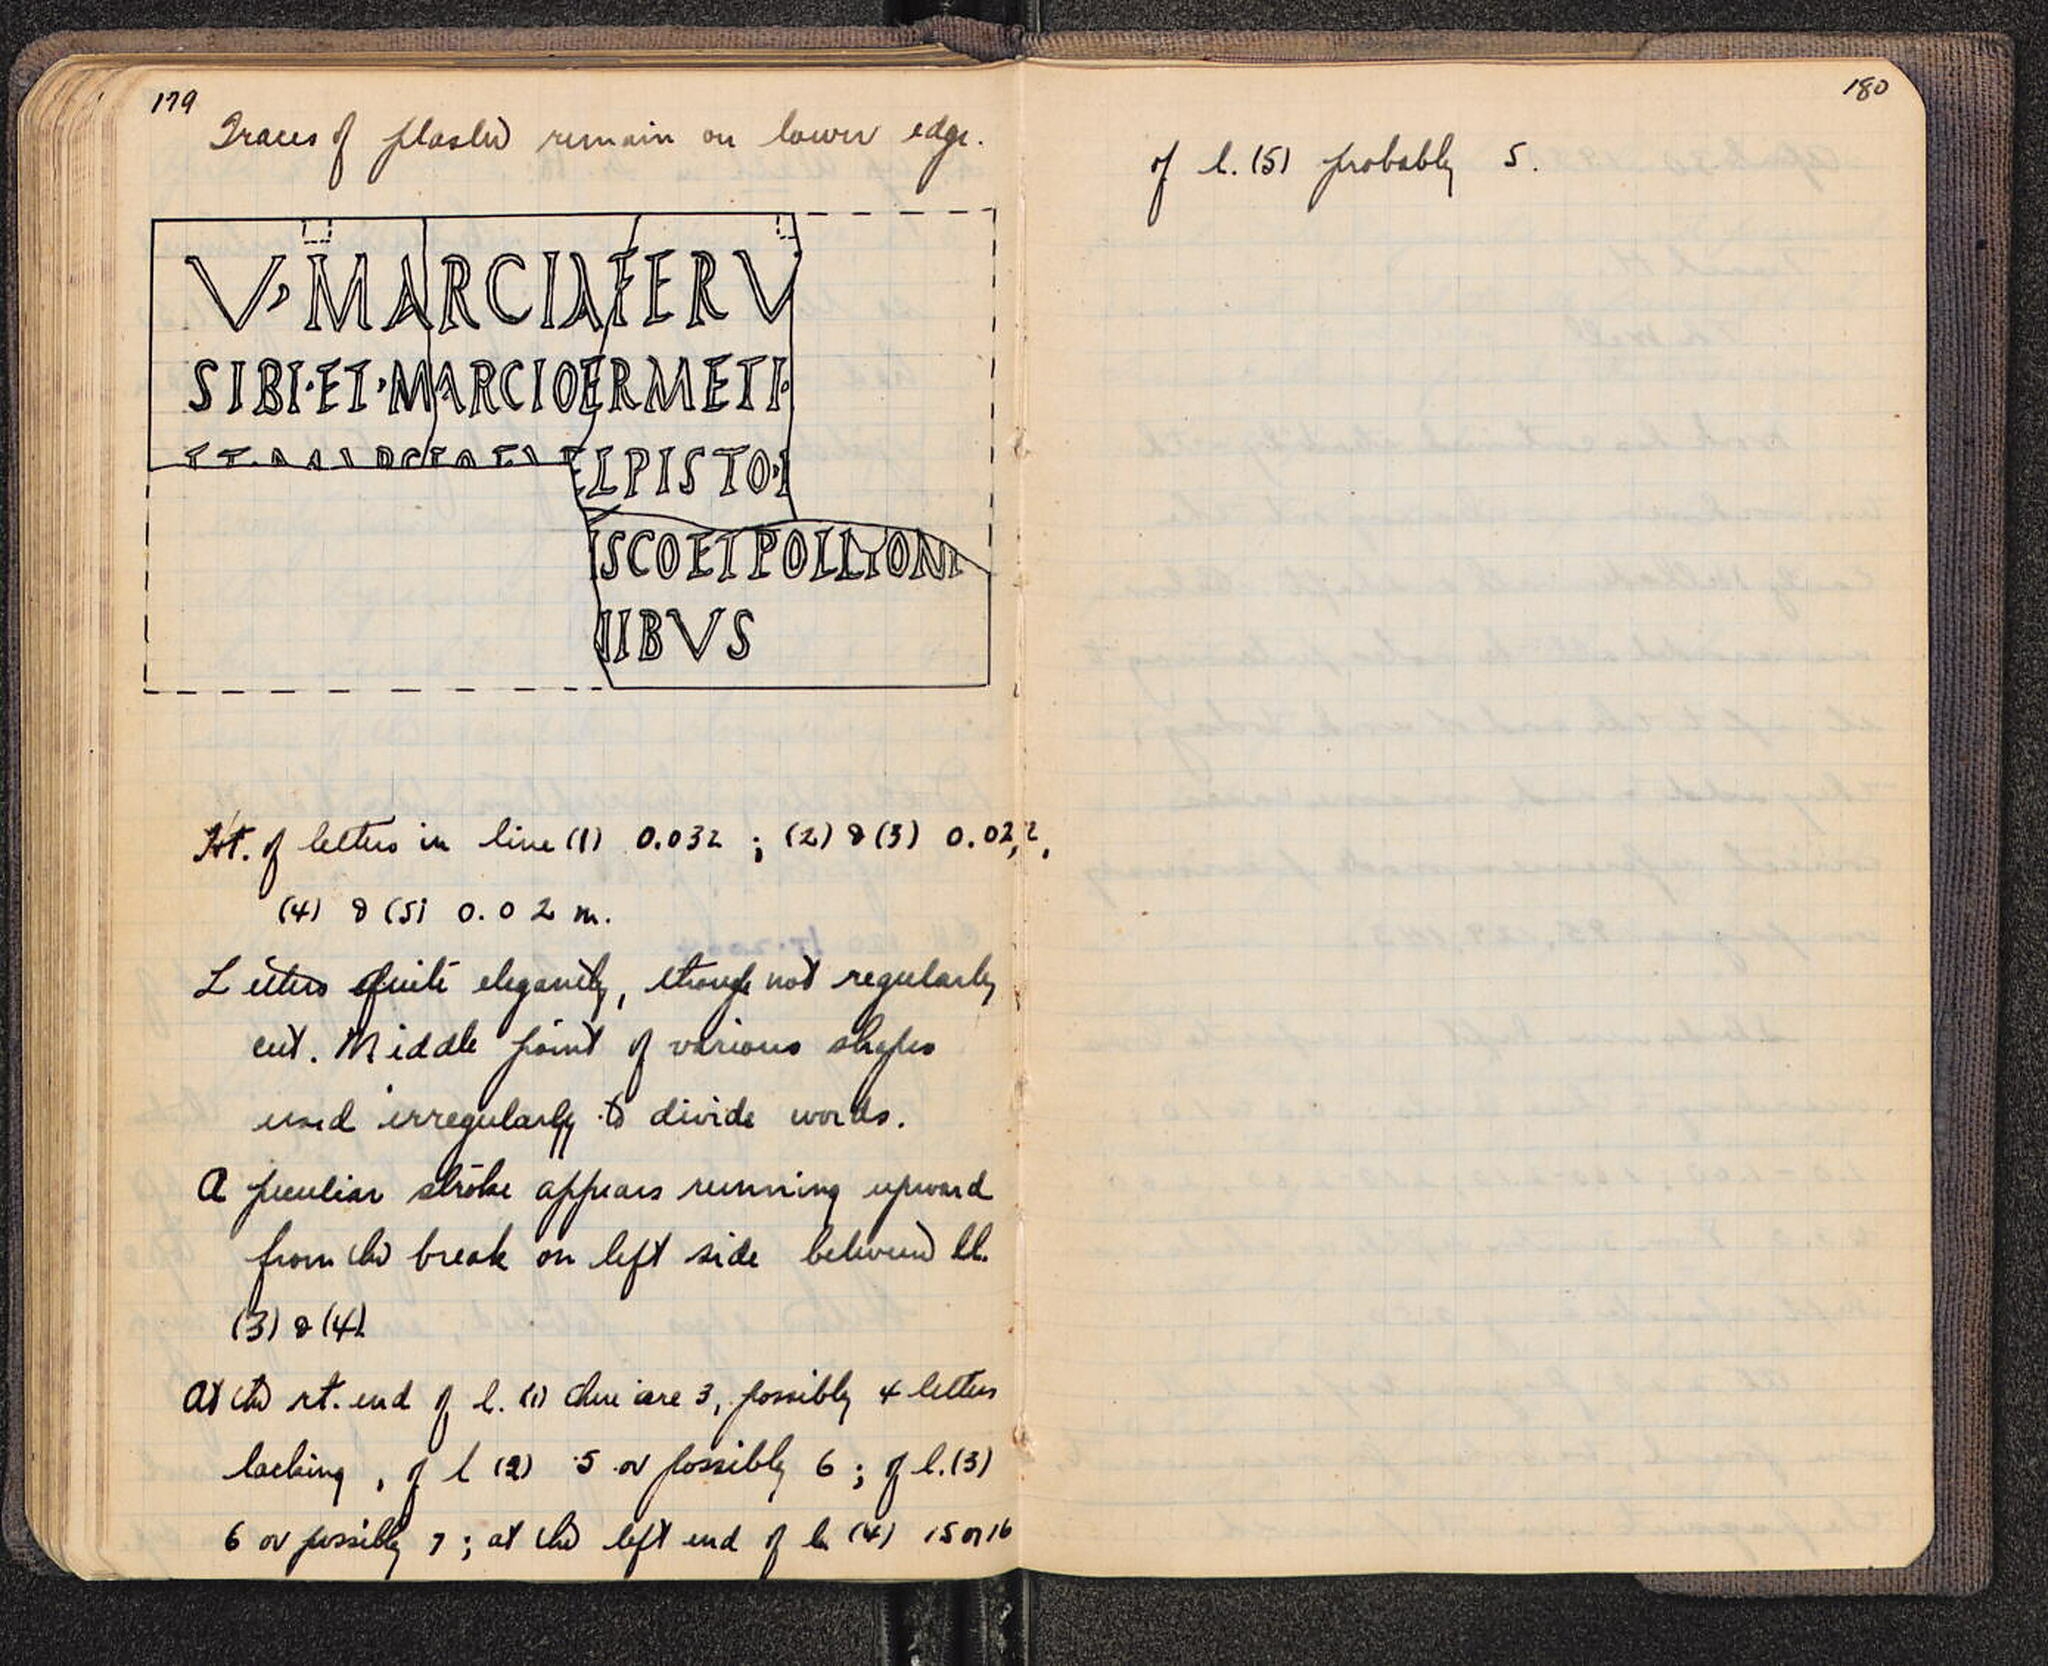 179
Traces of plaster remain on lower edge.
V, MARCIA FERV
SIBI·ET, MARCIOERMETI·
ET· MARCIO ELPISTO,
ISCOETPOLLIONI
IIBVS
Ht. of letters in line (1) 0.032 ; (2) & (3) 0.022,
(4) & (5) 0.02 m.
Letters quite elegantly, though not regularly
cut. Middle point of various shapes
used irregularly to divide words.
A peculiar stroke appears running upward
from the break on left side between ll.
(3) & (4).
At the rt. end of l. (1) there are 3, possibly 4 letters
lacking, of l (2) 5 or possibly 6 ; of l. (3)
6 or possibly 7 ; at the left end of l. (4) 15 or 16
180
of l. (5) probably 5.